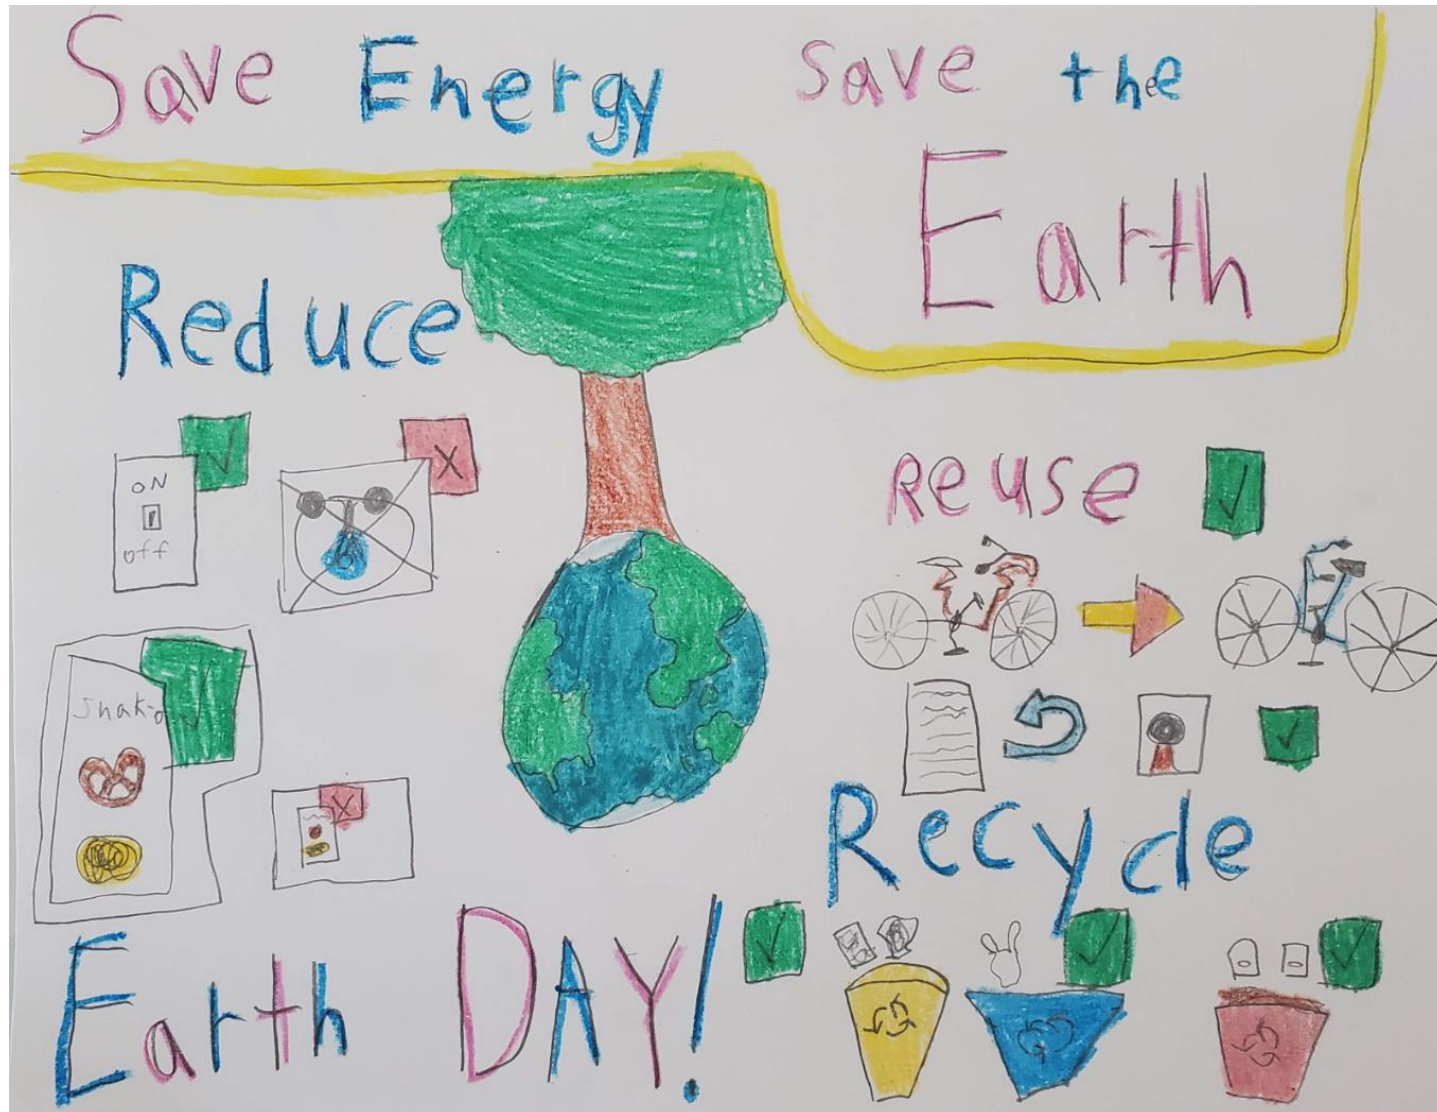 Save Energy
Save the
Earth
Reduce
ON
off
Reuse
Recycle
Earth DAY!